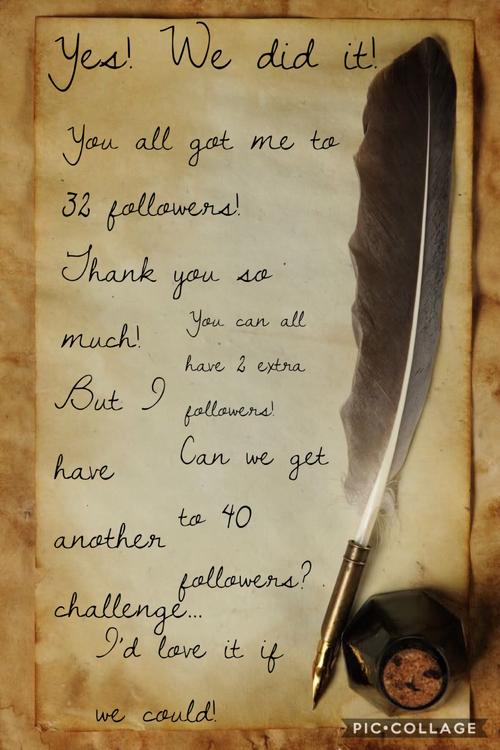 Yes! We did it!
You all got me to
32 followers!
Thank you so
much!
You can all
have 2 extra
followers!
But I
have
another
challenge...
Can we get
to 40
followers?
I'd love it if
we could!
PIC•COLLAGE